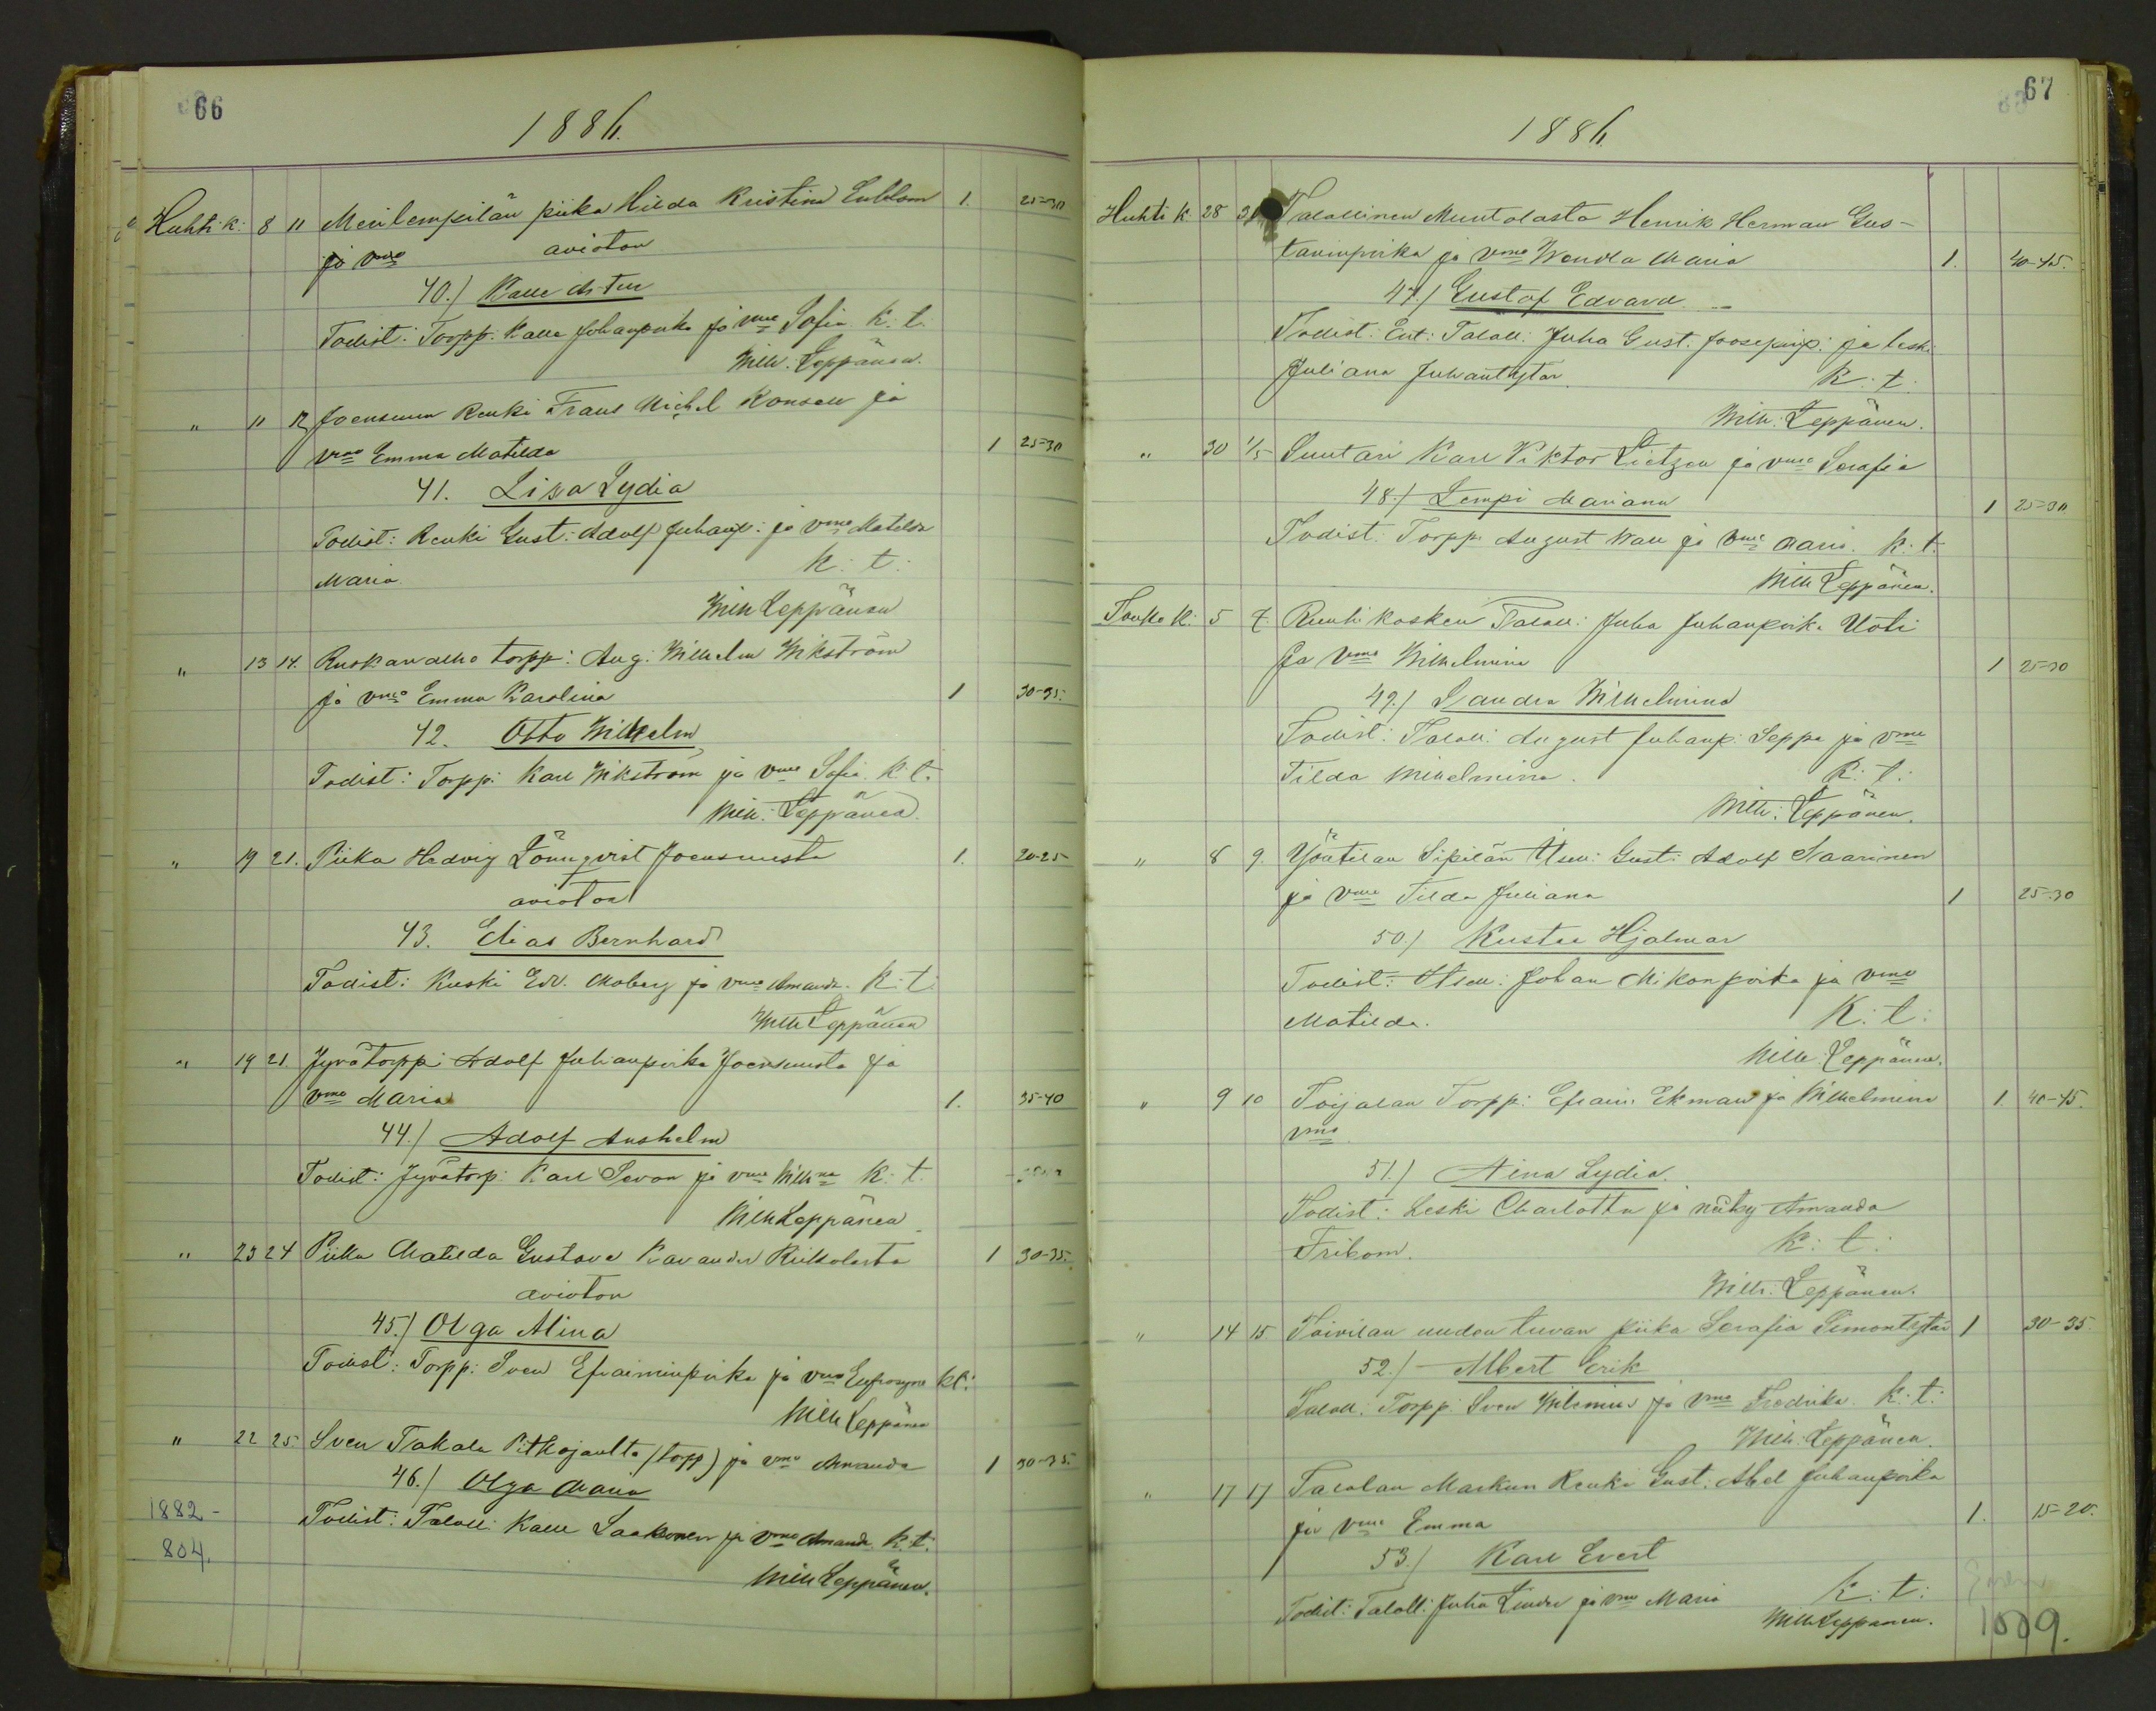 66
1886.
Huhti k: 8 11 Meiilempilän piika Hilda Kristina Enblom 1. 25-30
ja vmo avioton
40.) Kalle Artur
Todist: Torpp: Kalle Juhanpoika ja vmo Sofia K: t.
Wilh: Leppänen.
" 11 12 Joensuun Renki Frans Michel Konsell ja
vmo Emma Matilda 1 25-30
41. Lisa Lydia
Todist: Renki Gust: Adolf Juhanp: ja vmo Matilda
Maria. K: t:
Wilh Leppänen
" 13 14. Ruskanalho torpp: Aug: Wilhelm Wikström
ja vmo Emma Karolina 1 30-35.
42. Otto Wilhelm
Todist: Torpp: Karl Wikström ja vmo Sofia K: t.
Wilh: Leppänen.
" 19 21. Piika Hedvig Lönnqvist Joensuusta 1. 20-25
avioton
43. Elias Bernhard
Todist: Kuski Edv. Moberg ja vmo Amanda. K: t:
Wilh Leppänen
" 19 21. Jyvätorpp: Adolf Juhanpoika Joensuusta ja
vmo Maria 1. 35-40
44.) Adolf Anshelm
Todist: Jyvätorp: Karl Savon ja vmo Wilhna K: t.
Wilh Leppänen
" 23 24 Piika Matilda Gustava Kavander Riikolasta 1 30-35.
avioton
45.) Olga Alina
Todist: Torpp: Sven Efraiminpoika ja vmo Eufrosyne K t:
Wilh Leppänen
" 22 25. Sven Takala Pitkäjaulta (torpp) ja vmo Amanda 1 30-35.
46.) Olga Maria
Todist: Talolli: Kalle Saakonen ja vmo Amanda K: t:
Wilh Leppänen.
1882-
804.
67
1886.
Huhti k 28 30 Talollinen Muntolasta Henrik Herman Gus-
tavinpoika ja vmo Wendla Maria 1. 40-45.
47.) Gustaf Edvard.
Todist: Ent: Taloll: Juha Gust. Joosepinp: ja leski
Juliana Juhantytär. K: t:
Wilh: Leppänen.
" 30 1/5 Suutari Karl Viktor Lietzen ja vmo Serafia
48.) Lempi Mariana 1 25-30
Todist: Torpp August Wall ja vmo Maria. K: t.
Wilh Leppänen.
Touko K: 5 7. Ruuhikosken Taloll: Juha Juhanpoika Uoti
ja vmo Wilhelmina 1 25-30
49.) Sandra Wilhelmina
Todist: Taloll: August Juhanp: Seppa ja vmo
Tilda Wilhelmina. K: t:
Wilh: Leppänen.
" 8 9. Yöntilan Sipilän Itsell: Gust: Adolf Saarinen
ja vmo Tilda Juliana 1 25-30
50.) Kustaa Hjalmar
Todist: Itsell: Johan Mikonpoika ja vmo
Matilda. K: t:
Wilh: Leppänen.
" 9 10 Toijalan Torpp: Efraim Ekman ja Wilhelmina 1. 40-45.
vmo
51.) Aina Lydia.
Todist: Leski Charlotta ja neitsy Amanda
Fribom. K: t:
Wilh: Leppänen.
" 14 15 Toivilan uuden tuvan piika Serafia Simontytär 1 30-35.
52.) Albert Erik
Taloll: Torpp: Sven Wilenius ja vmo Fredrika. K: t:
Wilh: Leppänen.
" 17 17 Talolan Markun Renki Gust. Abel Juhanpoika
ja vmo Emma 1. 15-20.
53.) Karl Evert
Todist: Taloll: Juha Linder ja vmo Maria K: t:
Wilh Leppänen.
1009.